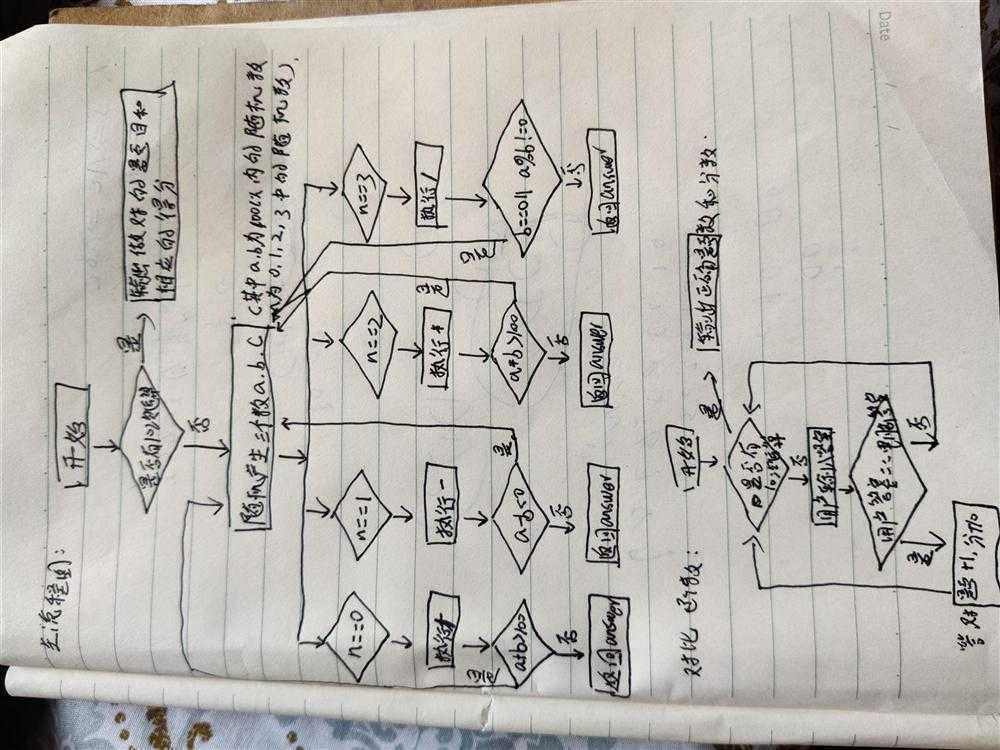 Date
主流程图:
开始
是否有10次运算
是
输出做对的题目和
相应的得分
否
随机产生三个数a.b.c
(其中a.b为100以内的随机数
n为0,1,2,3中的随机数).
n==0
n==1
n==2
n==3
执行+
执行-
执行*
执行/
a+b>100
a-b<0
a*b>100
b==0|| a%b!=0
是
是
是
是
否
否
否
否
返回answer
返回answer
返回answer
返回answer
对比函数:
开始
是否有
10次运算
是
输出正确题数和分数.
否
用户输入答案
用户答案==判断答案
是
否
答对题+1,分加10